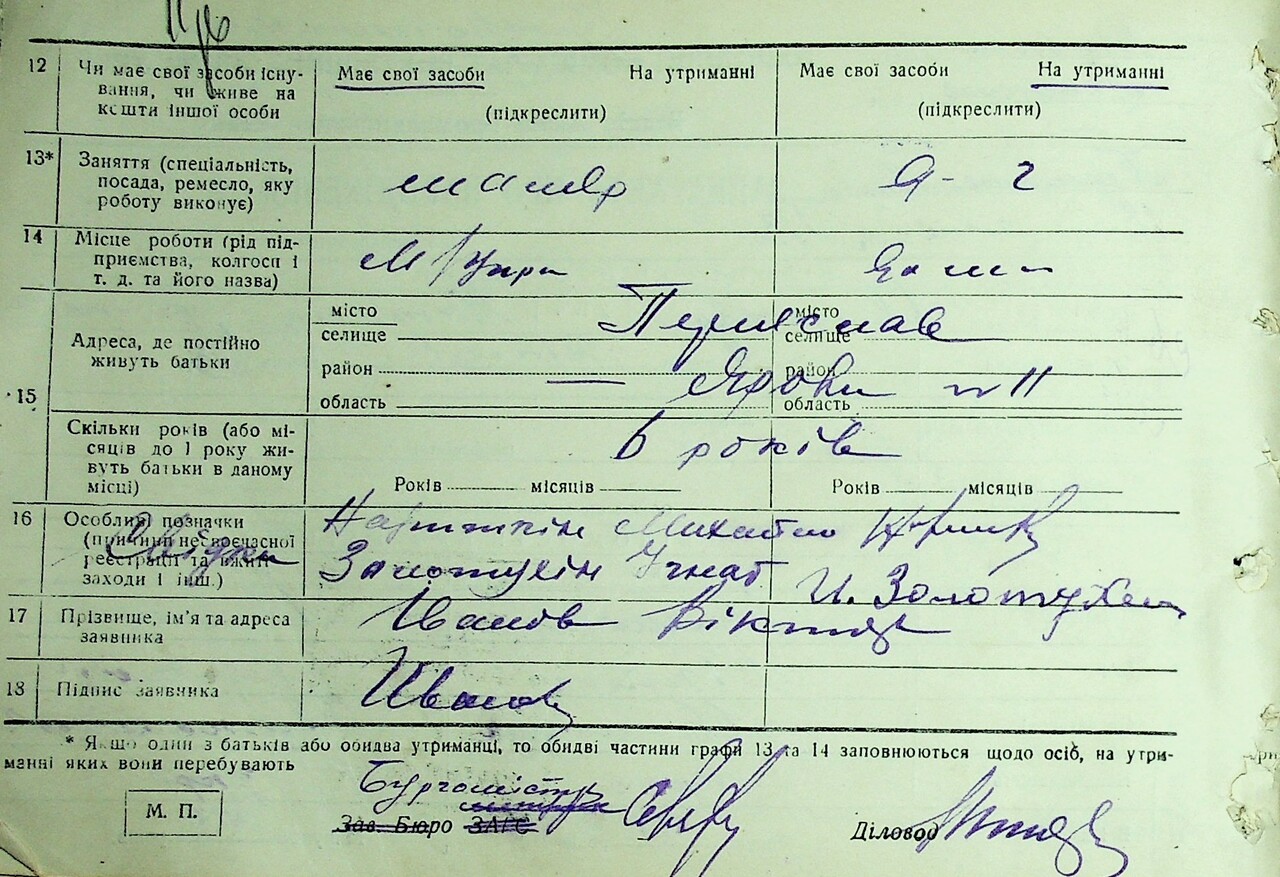 12 Чи має свої засоби існу- Має свої засоби На утриманні Має свої засоби На утриманні
вання, чи живе на
кошти іншої особи (підкреслити) (підкреслити)
13* Заняття (спеціальність,
посада, ремесло, яку
роботу виконує)
14 Місце роботи (рід під-
приємства, колгосп і
т. д. та його назва)
15 Адреса, де постійно
живуть батьки
місто місто
селище селище
район район
область область
6 років
Скільки років (або мі-
сяців до 1 року жи-
вуть батьки в даному
місці)
Років місяців Років місяців
16 Особливі позначки
(причини несвоєчасної
реєстрації та вжиті
заходи і інш.)
Свідки
Михайло
Золотухін Гнат И. Золотухин
17 Прізвище, ім'я та адреса
заявника
Іванов Віктор
18 Підпис заявника
Иванов
* Якщо один з батьків або обидва утриманці, то обидві частини графи 13 та 14 заповнюються щодо осіб, на утри-
манні яких вони перебувають
Бургомістр
М. П. Зав. Бюро ЗАГС Діловод